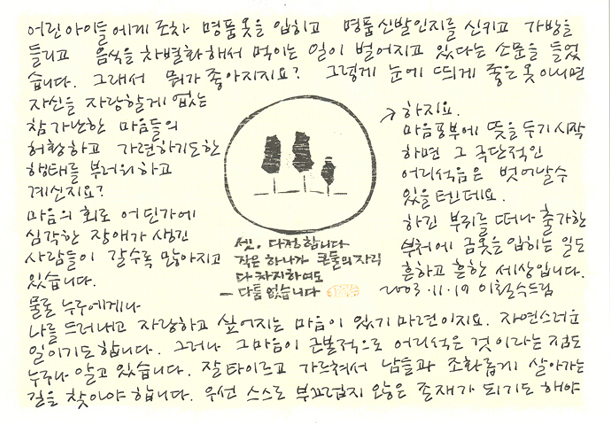 어린 아이들에게 조차 명품옷을 입히고 명품신발인지를 신키고 가방을
들리고 음식을 차별화해서 먹이는 일이 벌어지고 있다는 소문을 들었
습니다. 그래서 뭐가 좋아지지요? 그렇게 눈에 띄게 좋은 옷 아니면
자신을 자랑할게 없는
참 가난한 마음들의
허황하고 가련하기도한
행태를 부러워하고
계신지요?
마음의 회로 어딘가에
심각한 장애가 생긴
사람들이 갈수록 많아지고
있습니다.
물론 누구에게나
나를 드러내고 자랑하고 싶어지는 마음이 있기 마련이지요. 자연스러운
일이기도 합니다. 그러나 그 마음이 근본적으로 어리석은 것이라는 점도
누구나 알고 있습니다. 잘 타이르고 가르쳐서 남들과 조화롭게 살아가는
길을 찾아야 합니다. 우선 스스로 부끄럽지 않은 존재가 되기도 해야
→ 하지요.
마음공부에 뜻을 두기 시작
하면 그 극단적인
어리석음은 벗어날수
있을텐데요.
하긴 뿌리를 떠나 출가한
부처에 금옷을 입히는 일도
흔하고 흔한 세상입니다.
2003.11.19 이철수드림
셋. 다정합니다
작은 하나가 큰둘의 자리
다 차지하여도
— 다툼 없습니다